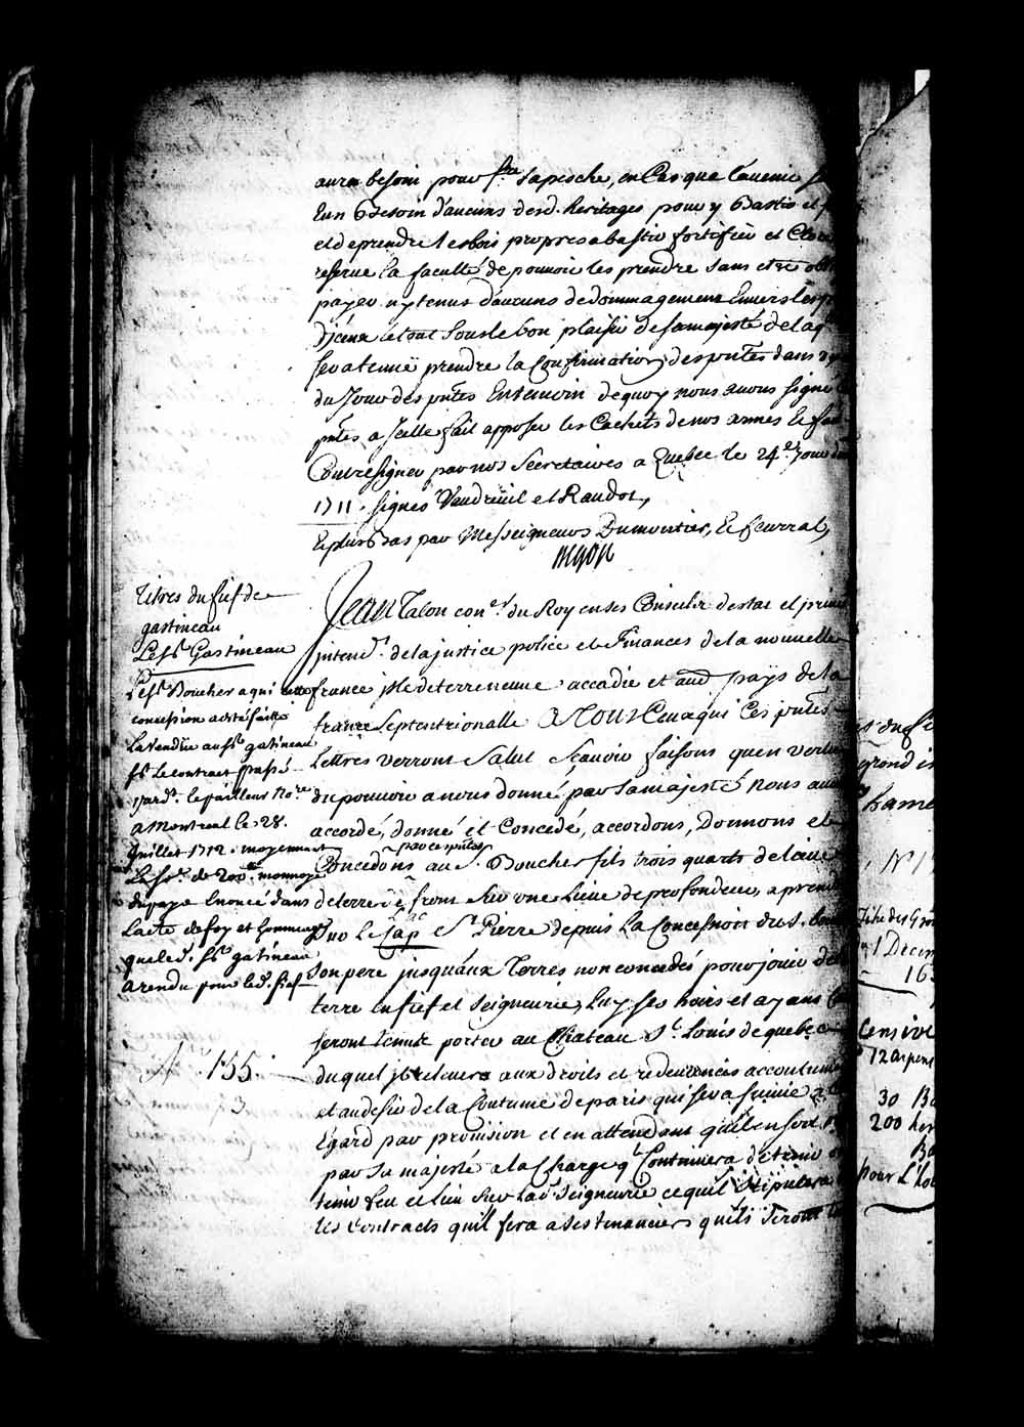 aura besoin pour sa pesche, en Cas que l'avenir
Eun besoin d'aucuns desd. heritages pour y bastir et
et de prendre les bois propres a bastir fortifier et
reserve la faculté de pouvoir les prendre sans etre
payer ny tenus d'aucuns dedommagement Envers les
le tout Sous le bon plaisir de sa majesté de laq
sera tenuë prendre la Confirmation des pntes dans
du Jour des pntes En temoin de quoy nous avons signé
pntes a Icelle fait apposer les Cachets de nos armes et
Contresigner par nos Secretaires a Quebec le 24e Jour
1711. signés Vaudreuil et Raudot,
Et plus bas par Messeigneurs Dumontier, et
Begon
Titres du fief de
gastineau
Le Sr. Gastineau
Le Sr Boucher a qui cette
concession a esté faitte
La vendu au Sr gatineau
Le contract passé
pard. le pailleur Nore
a Montreal le 28.
Juillet 1712. moyennant
de 200tt monnoye
du paye Enoncé dans
L'acte de foy et hommage
que led. Sr gatineau
a rendu pour led. fief
N. 155.
Jean Talon coner du Roy en ses Conseils destat et
intendt. de la justice police et Finances de la nouvelle
france isle de terre neuve accadie et aud pays de la
france Septentrionalle A Tous Ceux qui Ces pntes
Lettres verront Salut Sçavoir faisons quen vertu
du pouvoir a nous donné par Sa majesté nous
accordé, donné et Concedé, accordons, Donnons et
par ces pntes
Concedons au S. Boucher fils trois quarts de lieue
de terre de front Sur une Lieue de profondeur, a prendre
Lac
Sur le Cap St Pierre depuis La Concession du S.
Son pere jusquaux Terres non concedés pour jouir de
terre en fief et Seigneurie, Luy ses hoirs et ayans
seront tenus porter au Chateau St. Louis de quebec
duquel jl relevera aux droits et redevances accoutumés
et au desir de la Coutume de paris qui sera suivie a
Egard par provision et en attendant quil en soit
par Sa majesté a la Charge q. Continuera de tenir
tenir feu et lieu Sur lad. Seigneurie ce quil Stipulera
les Contracts quil fera a ses tenanciers quils Seront
Titre des
1 Decem
12 arpens
30
200
pour L'